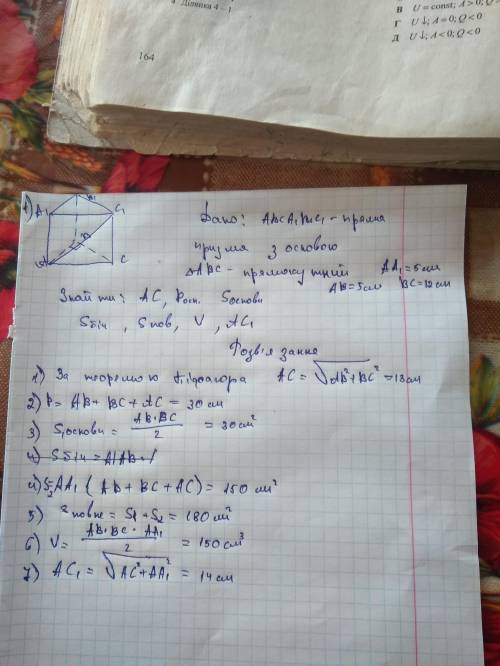 4 Ділянка 4 – 1
В U = const; A > 0; Q
Г U↓; A = 0; Q < 0
Д U↓; A < 0; Q < 0
164
A1 C1
C
Дано: ABCA1B1C1 - пряма
призма з основою
△ABC - прямокутний AA1 = 5 см
AB = 5 см BC = 12 см
Знайти: AC, Pосн. Sоснови
Sбіч, Sпов, V, AC1
Розв'язання
1) За теоремою Піфагора AC = √AB²+BC² = 13 см
2) P = AB + BC + AC = 30 см
3) S1основи = AB·BC / 2 = 30 см²
4) Sбіч = A1AB·
4) S2 AA1 (AB + BC + AC) = 150 см²
5) Sповне = S1 + S2 = 180 см²
6) V = AB·BC · AA1 / 2 = 150 см³
7) AC1 = √AC²+AA1² = 14 см